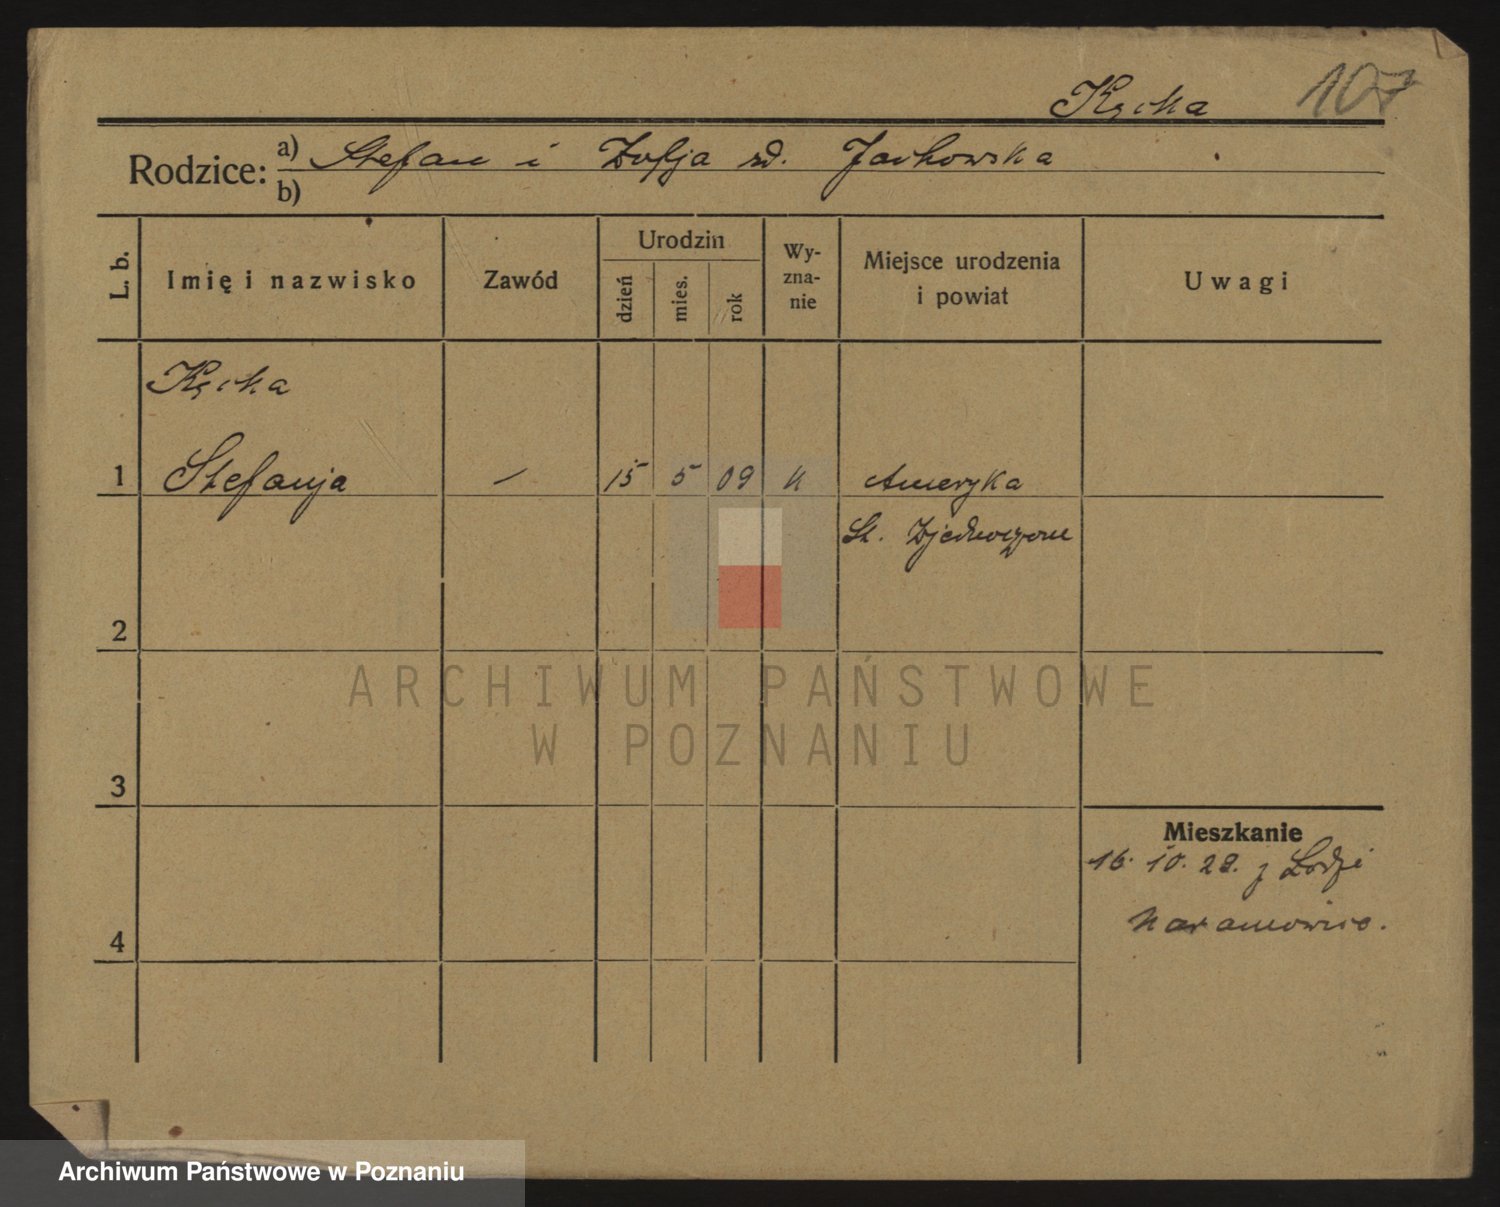 Kęcka 107
Rodzice: a) Stefan i Zofja zd. Jackowska
b)
L. b.
Imię i nazwisko
Zawód
Urodzin
dzień
mies.
rok
Wy-
zna-
nie
Miejsce urodzenia
i powiat
Uwagi
Kęcka
1 Stefanja — 15 5 09 k Ameryka
St. Zjednoczone
2
3
4
Mieszkanie
16. 10. 28. z Łodzi
Naramowice.
ARCHIWUM PAŃSTWOWE
W POZNANIU
Archiwum Państwowe w Poznaniu